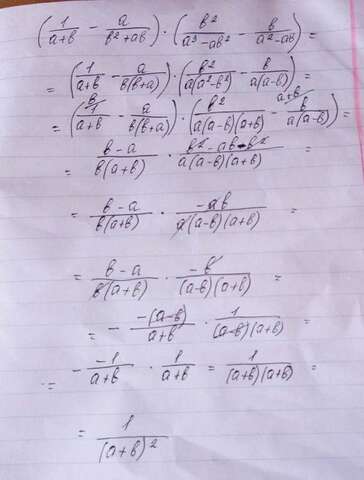 (1/(a+b) - a/(b²+ab)) · (b²/(a³-ab²) - b/(a²-ab)) =
= (1/(a+b) - a/(b(b+a))) · (b²/(a(a²-b²)) - b/(a(a-b))) =
= (1/(a+b) - a/(b(b+a))) · (b²/(a(a-b)(a+b)) - b/(a(a-b))) =
= (b-a)/(b(a+b)) · (b²-ab-b²)/(a(a-b)(a+b)) =
= (b-a)/(b(a+b)) · (-ab)/(a(a-b)(a+b)) =
= (b-a)/(b(a+b)) · (-b)/((a-b)(a+b)) =
= - (-(a-b))/(a+b) · 1/((a-b)(a+b)) =
= - (-1)/(a+b) · 1/(a+b) = 1/((a+b)(a+b)) =
= 1/(a+b)²